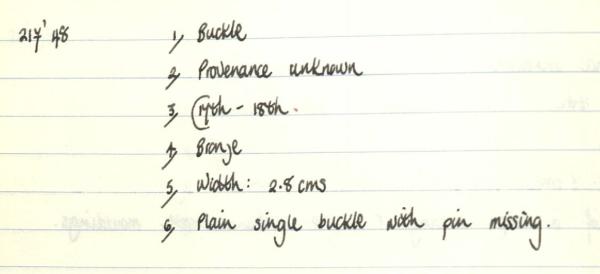 217'48 1, Buckle
2, Provenance unknown
3, (17th - 18th.
4, Bronze
5, Width: 2.8 cms
6, Plain single buckle with pin missing.